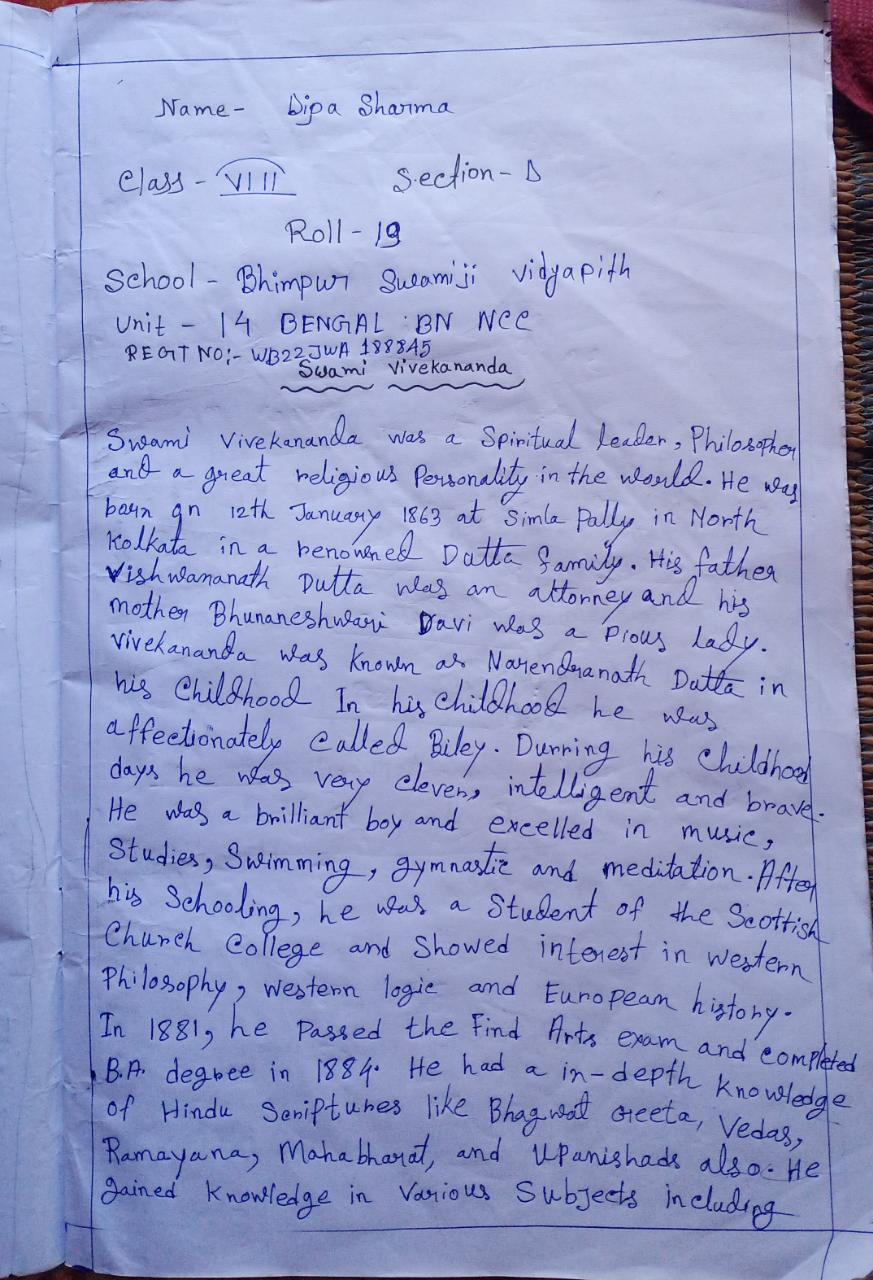 Name - Dipa Sharma
Class - VIII Section - D
Roll - 19
School - Bhimpur Swamiji Vidyapith
Unit - 14 BENGAL BN NCC
REGT NO:- WB22JWA 188845
Swami Vivekananda
Swami Vivekananda was a Spiritual leader, Philosopher
and a great religious Personality in the world. He was
born on 12th January 1863 at Simla Pally in North
Kolkata in a renowned Dutta family. His father
Vishwananath Dutta was an attorney and his
mother Bhunaneshwari Davi was a Pious Lady.
Vivekananda was known as Narendranath Dutta in
his Childhood In his childhood he was
affectionately called Biley. Durring his childhood
days he was very clever, intelligent and brave.
He was a brilliant boy and excelled in music,
Studies, Swimming, gymnastic and meditation. After
his Schooling, he was a Student of the Scottish
Church College and Showed interest in western
Philosophy, western logic and European history.
In 1881, he Passed the Find Arts exam and completed
B.A. degree in 1884. He had a in-depth knowledge
of Hindu Scriptures like Bhagwat Geeta, Vedas,
Ramayana, Mahabharat, and Upanishads also. He
gained knowledge in Various Subjects including